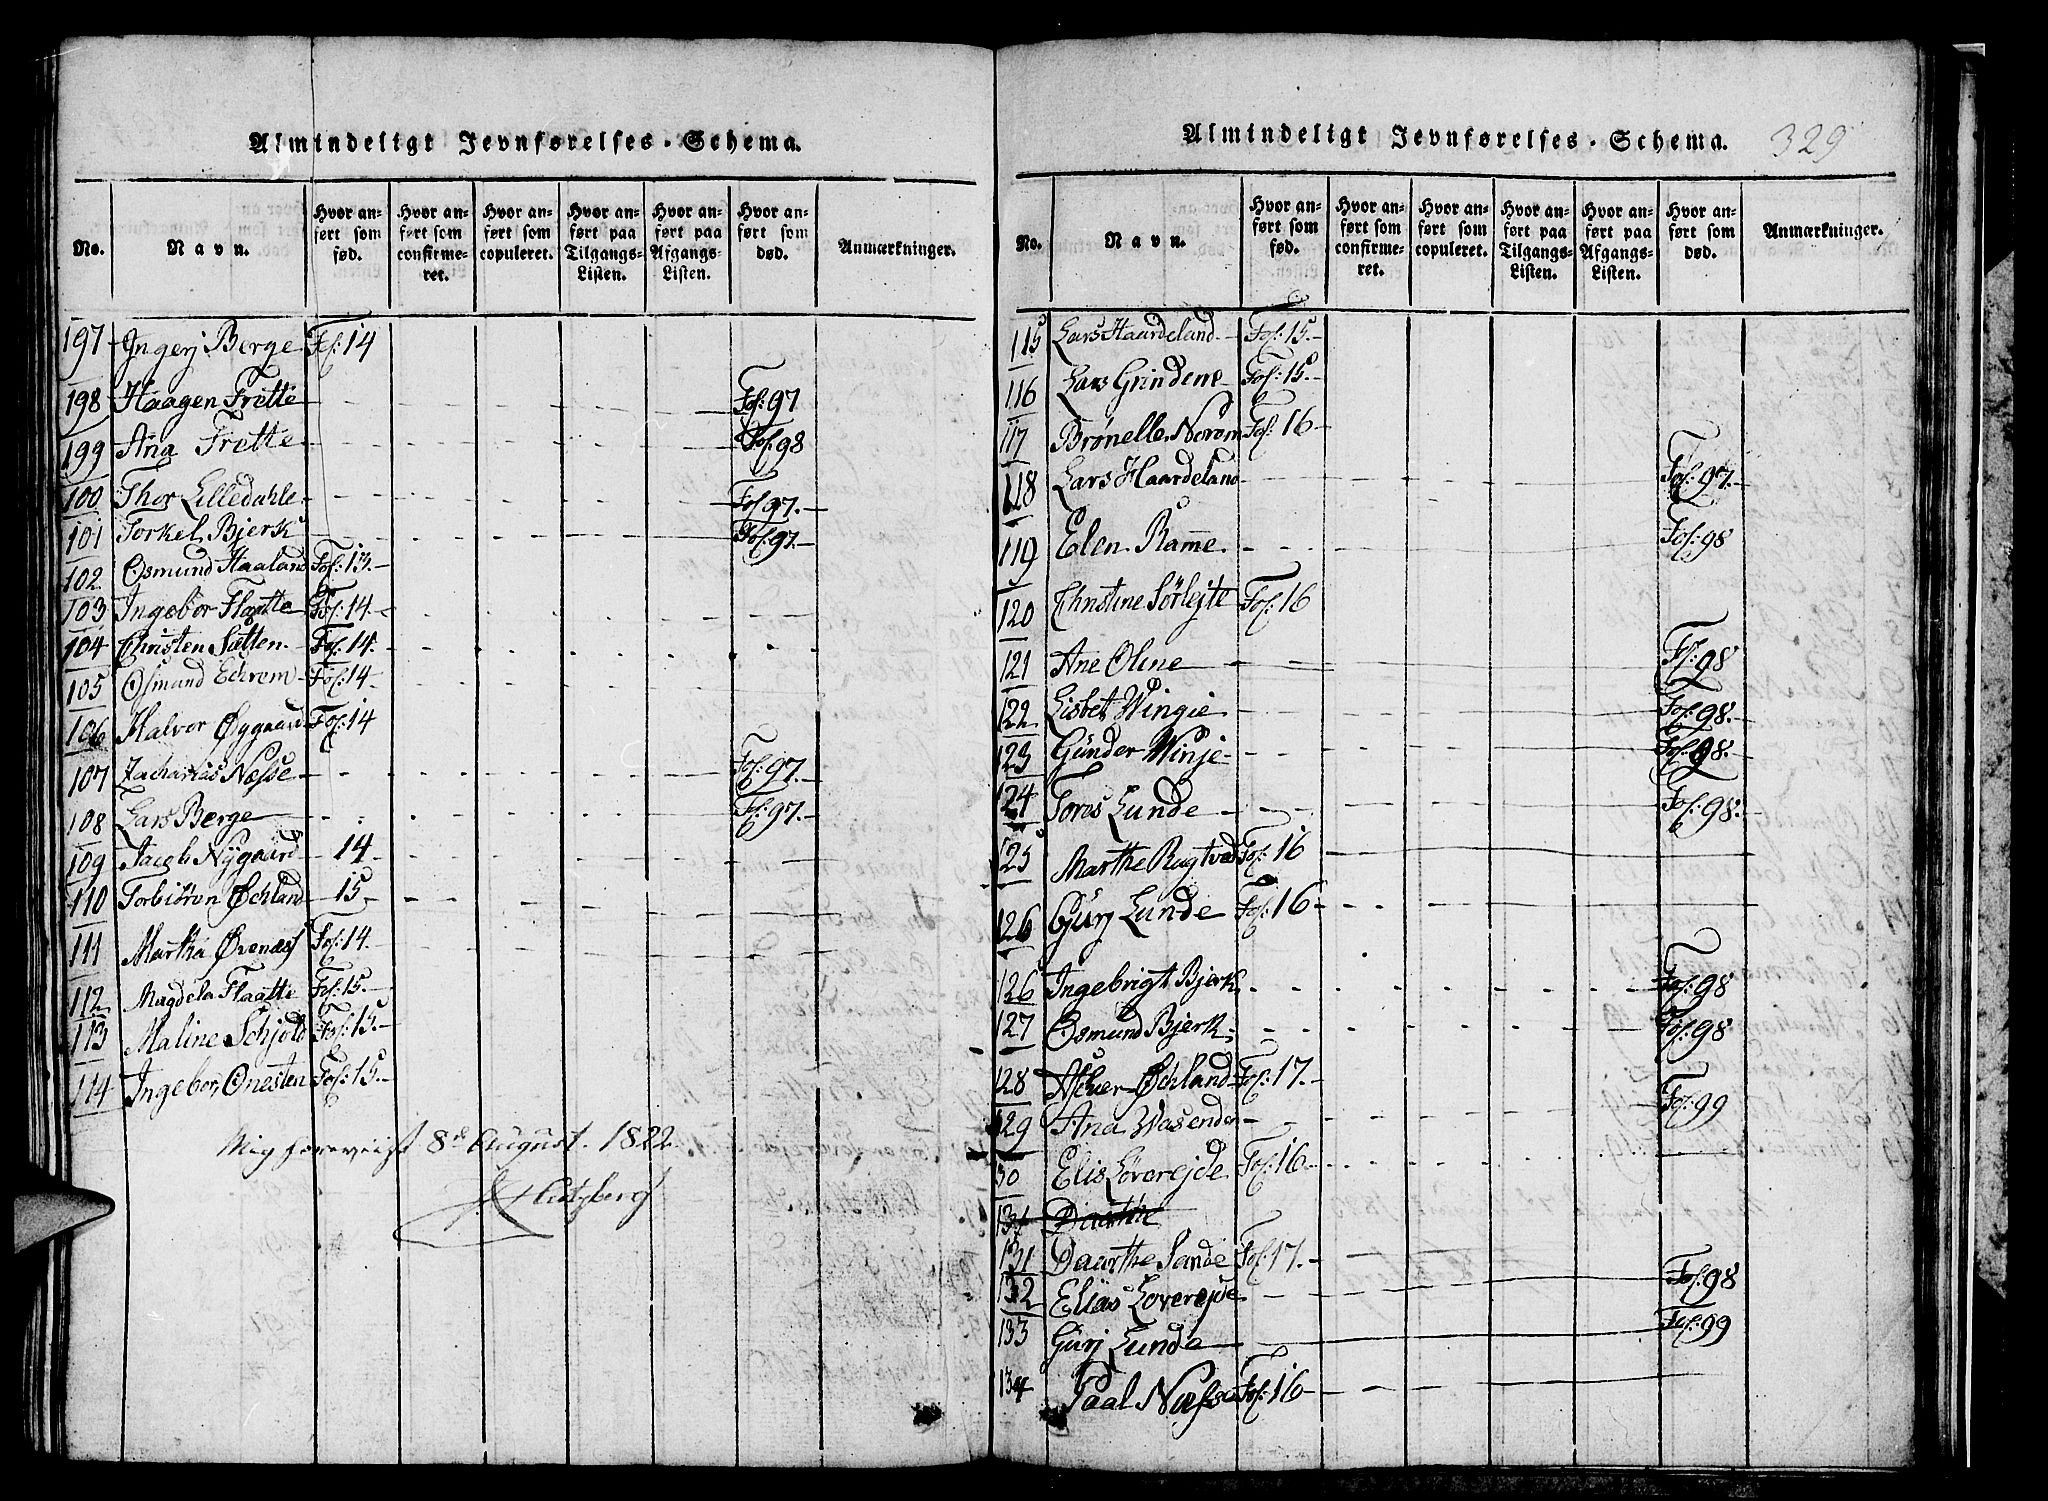 Almindeligt Jevnførelses-Schema.
No.
Navn.
Hvor anført som fød.
Hvor anført som confirmeret.
Hvor anført som copuleret.
Hvor anført paa Tilgangs-Listen.
Hvor anført paa Afgangs-Listen.
Hvor anført som død.
Anmærkninger.
197 Ingerj Berge Fol: 14
198 Haagen Frette Fol: 97
199 Ana Frette Fol: 98
100 Thor Lilledahle Fol: 97.
101 Torkel Bjerk Fol: 97.
102 Osmund Haaland Fol: 13.
103 Ingebor Flaatte Fol: 14.
104 Christen Sætten Fol: 14.
105 Osmund Echrem Fol: 14
106 Halvor Øygaard Fol: 14
107 Zacharias Næsse Fol: 97.
108 Lars Berge Fol: 97.
109 Jacob Nygaard 14
110 Torbiörn Øchland 15
111 Martha Ørenæss Fol: 14.
112 Magdela Flaatte Fol: 15.
113 Maline Schjold Fol: 15.
114 Ingebor Onesten Fol: 15.
Mig foreviist 8de August. 1822.
Almindeligt Jevnførelses-Schema. 329
No.
Navn.
Hvor anført som fød.
Hvor anført som confirmeret.
Hvor anført som copuleret.
Hvor anført paa Tilgangs-Listen.
Hvor anført paa Afgangs-Listen.
Hvor anført som død.
Anmærkninger.
115 Lars Haardeland Fol: 15.
116 Lars Grindene Fol: 15.
117 Brønelle Norem Fol: 16
118 Lars Haardeland Fol: 97.
119 Elen Ramme Fol: 98
120 Christine Sörlejte Fol: 16
121 Ane Oline Fol: 98
122 Lisbet Wingie Fol: 98.
123 Günder Winje Fol: 98.
124 Tores Lunde Fol: 98.
125 Marthe Rugtved Fol: 16
126 Gjurj Lunde Fol: 16
126 Ingebrigt Bjerk Fol: 98
127 Osmund Bjerk Fol: 98
128 Øchland Fol: 17.
129 Ana Wasenden Fol: 99
130 Elis Löverejde Fol: 16
131 Daarthe
131 Daarthe Sande Fol: 17.
132 Elias Loverejde Fol: 98
133 Gurj Lunde Fol: 99
134 Paal Næsse Fol: 16